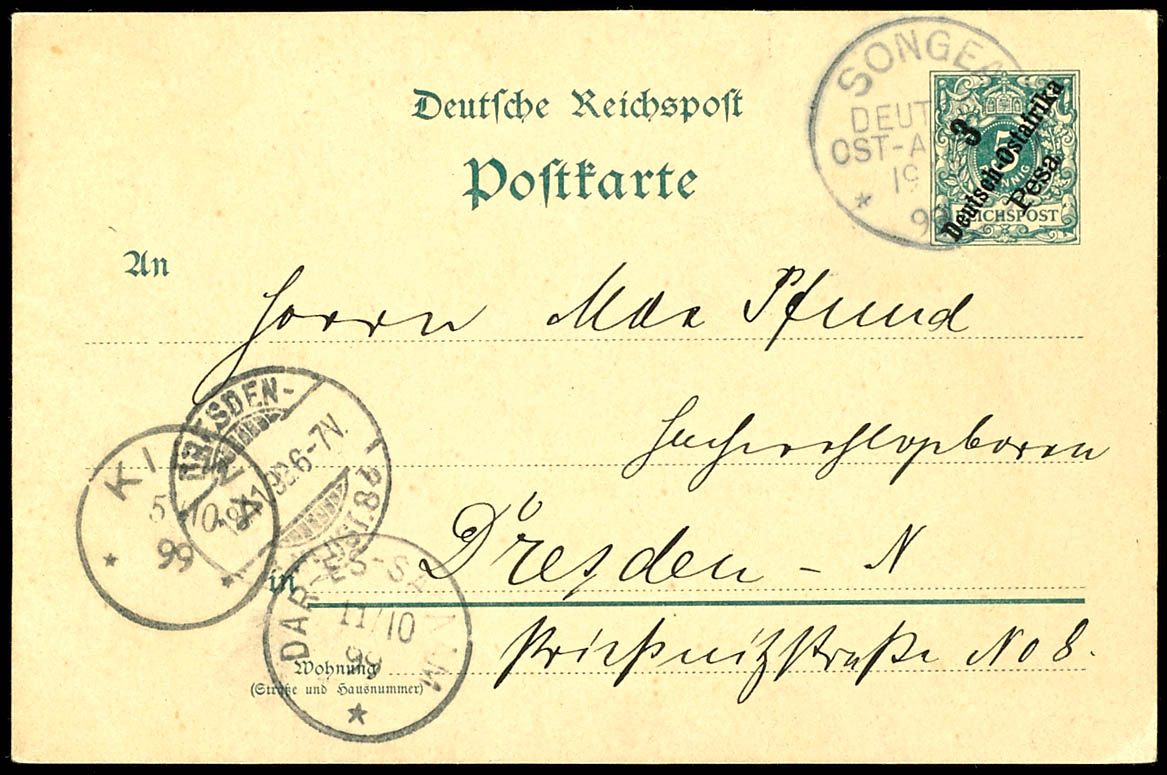 SONGEA
DEUT
OST-A
19
99
3
Deutsch-Ostafrika
Pesa
5
PFENNIG
REICHSPOST
Deutsche Reichspost
Postkarte
An
Herrn Max Pfund
Dresden - N
in
Prießnitzstraße No 8.
Wohnung
(Straße und Hausnummer)
DRESDEN-
6-7N.
KI
5/10
99
DAR-ES-SALAAM
11/10
99